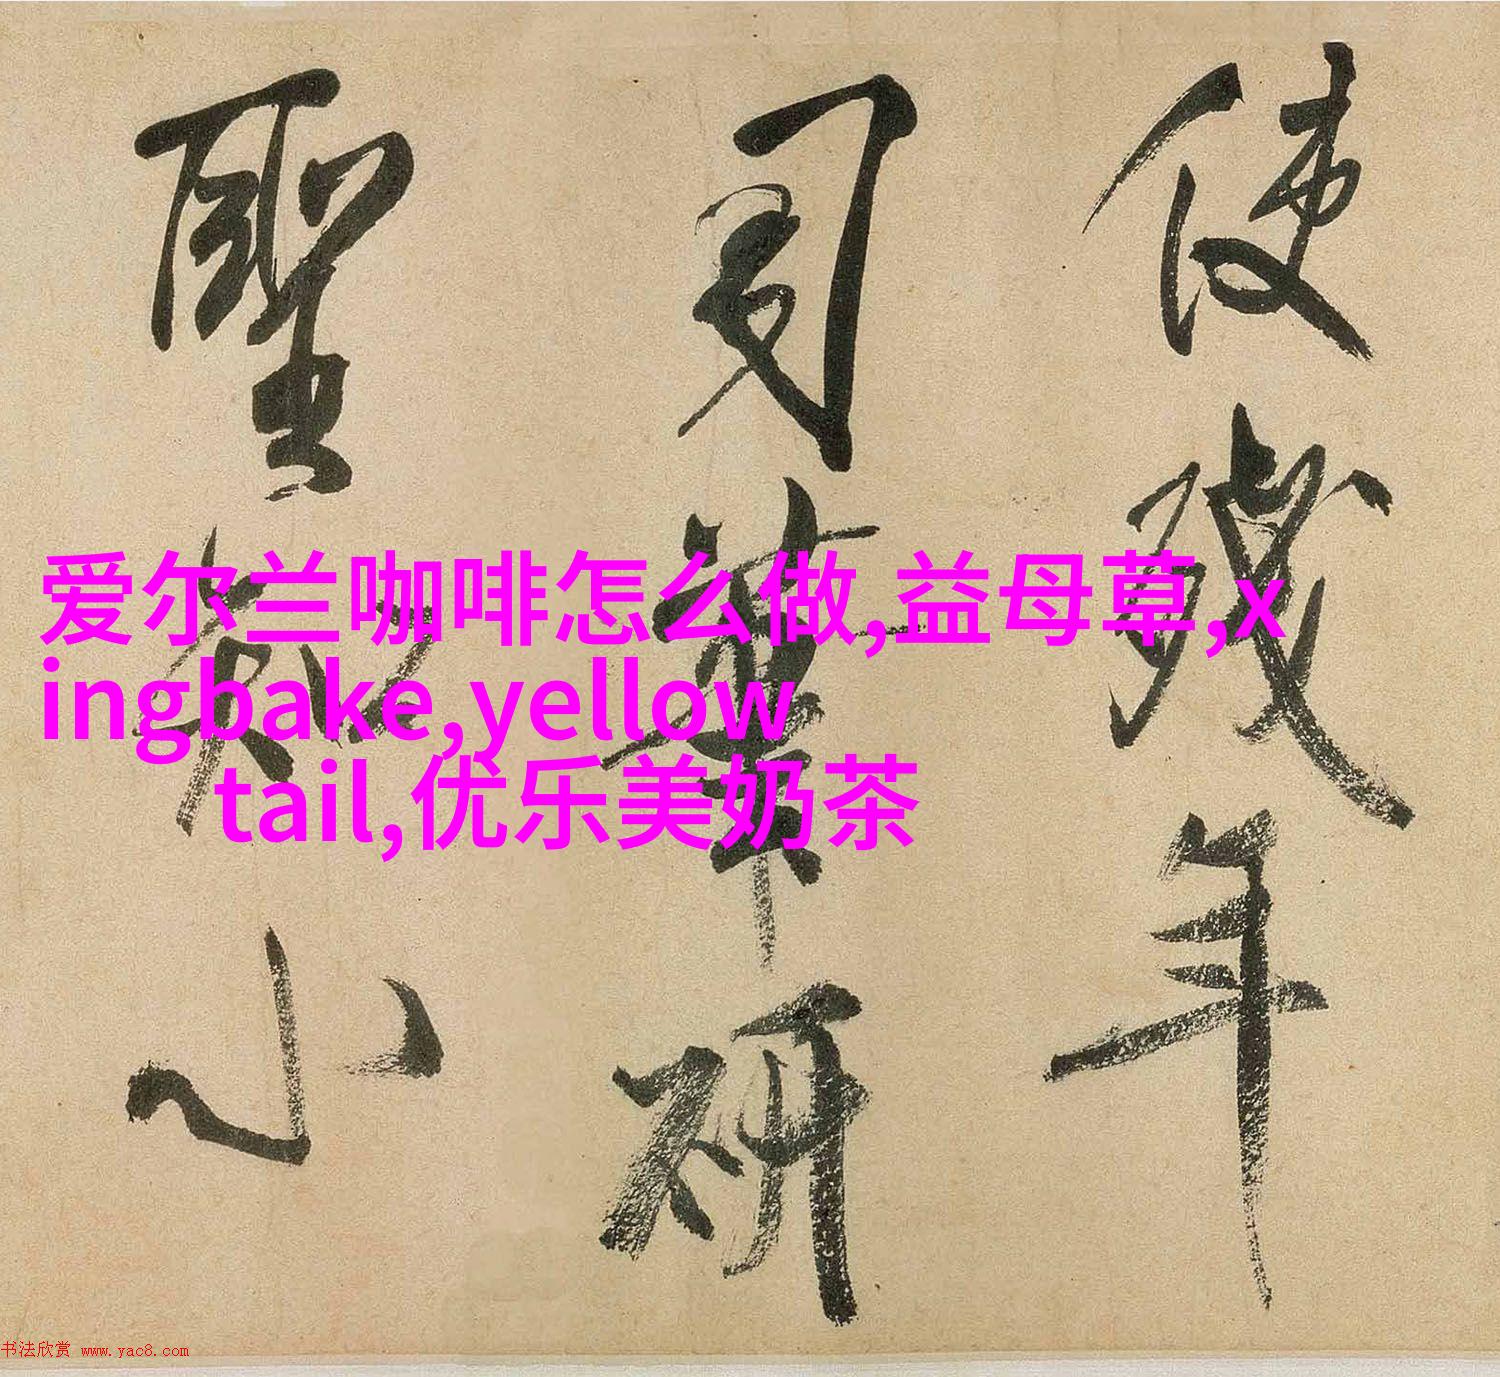 使殘年
司筆研
聖知小
爱尔兰咖啡怎么做,益母草,x
ingbake,yellow
tail,优乐美奶茶
书法欣赏 www.yac8.com